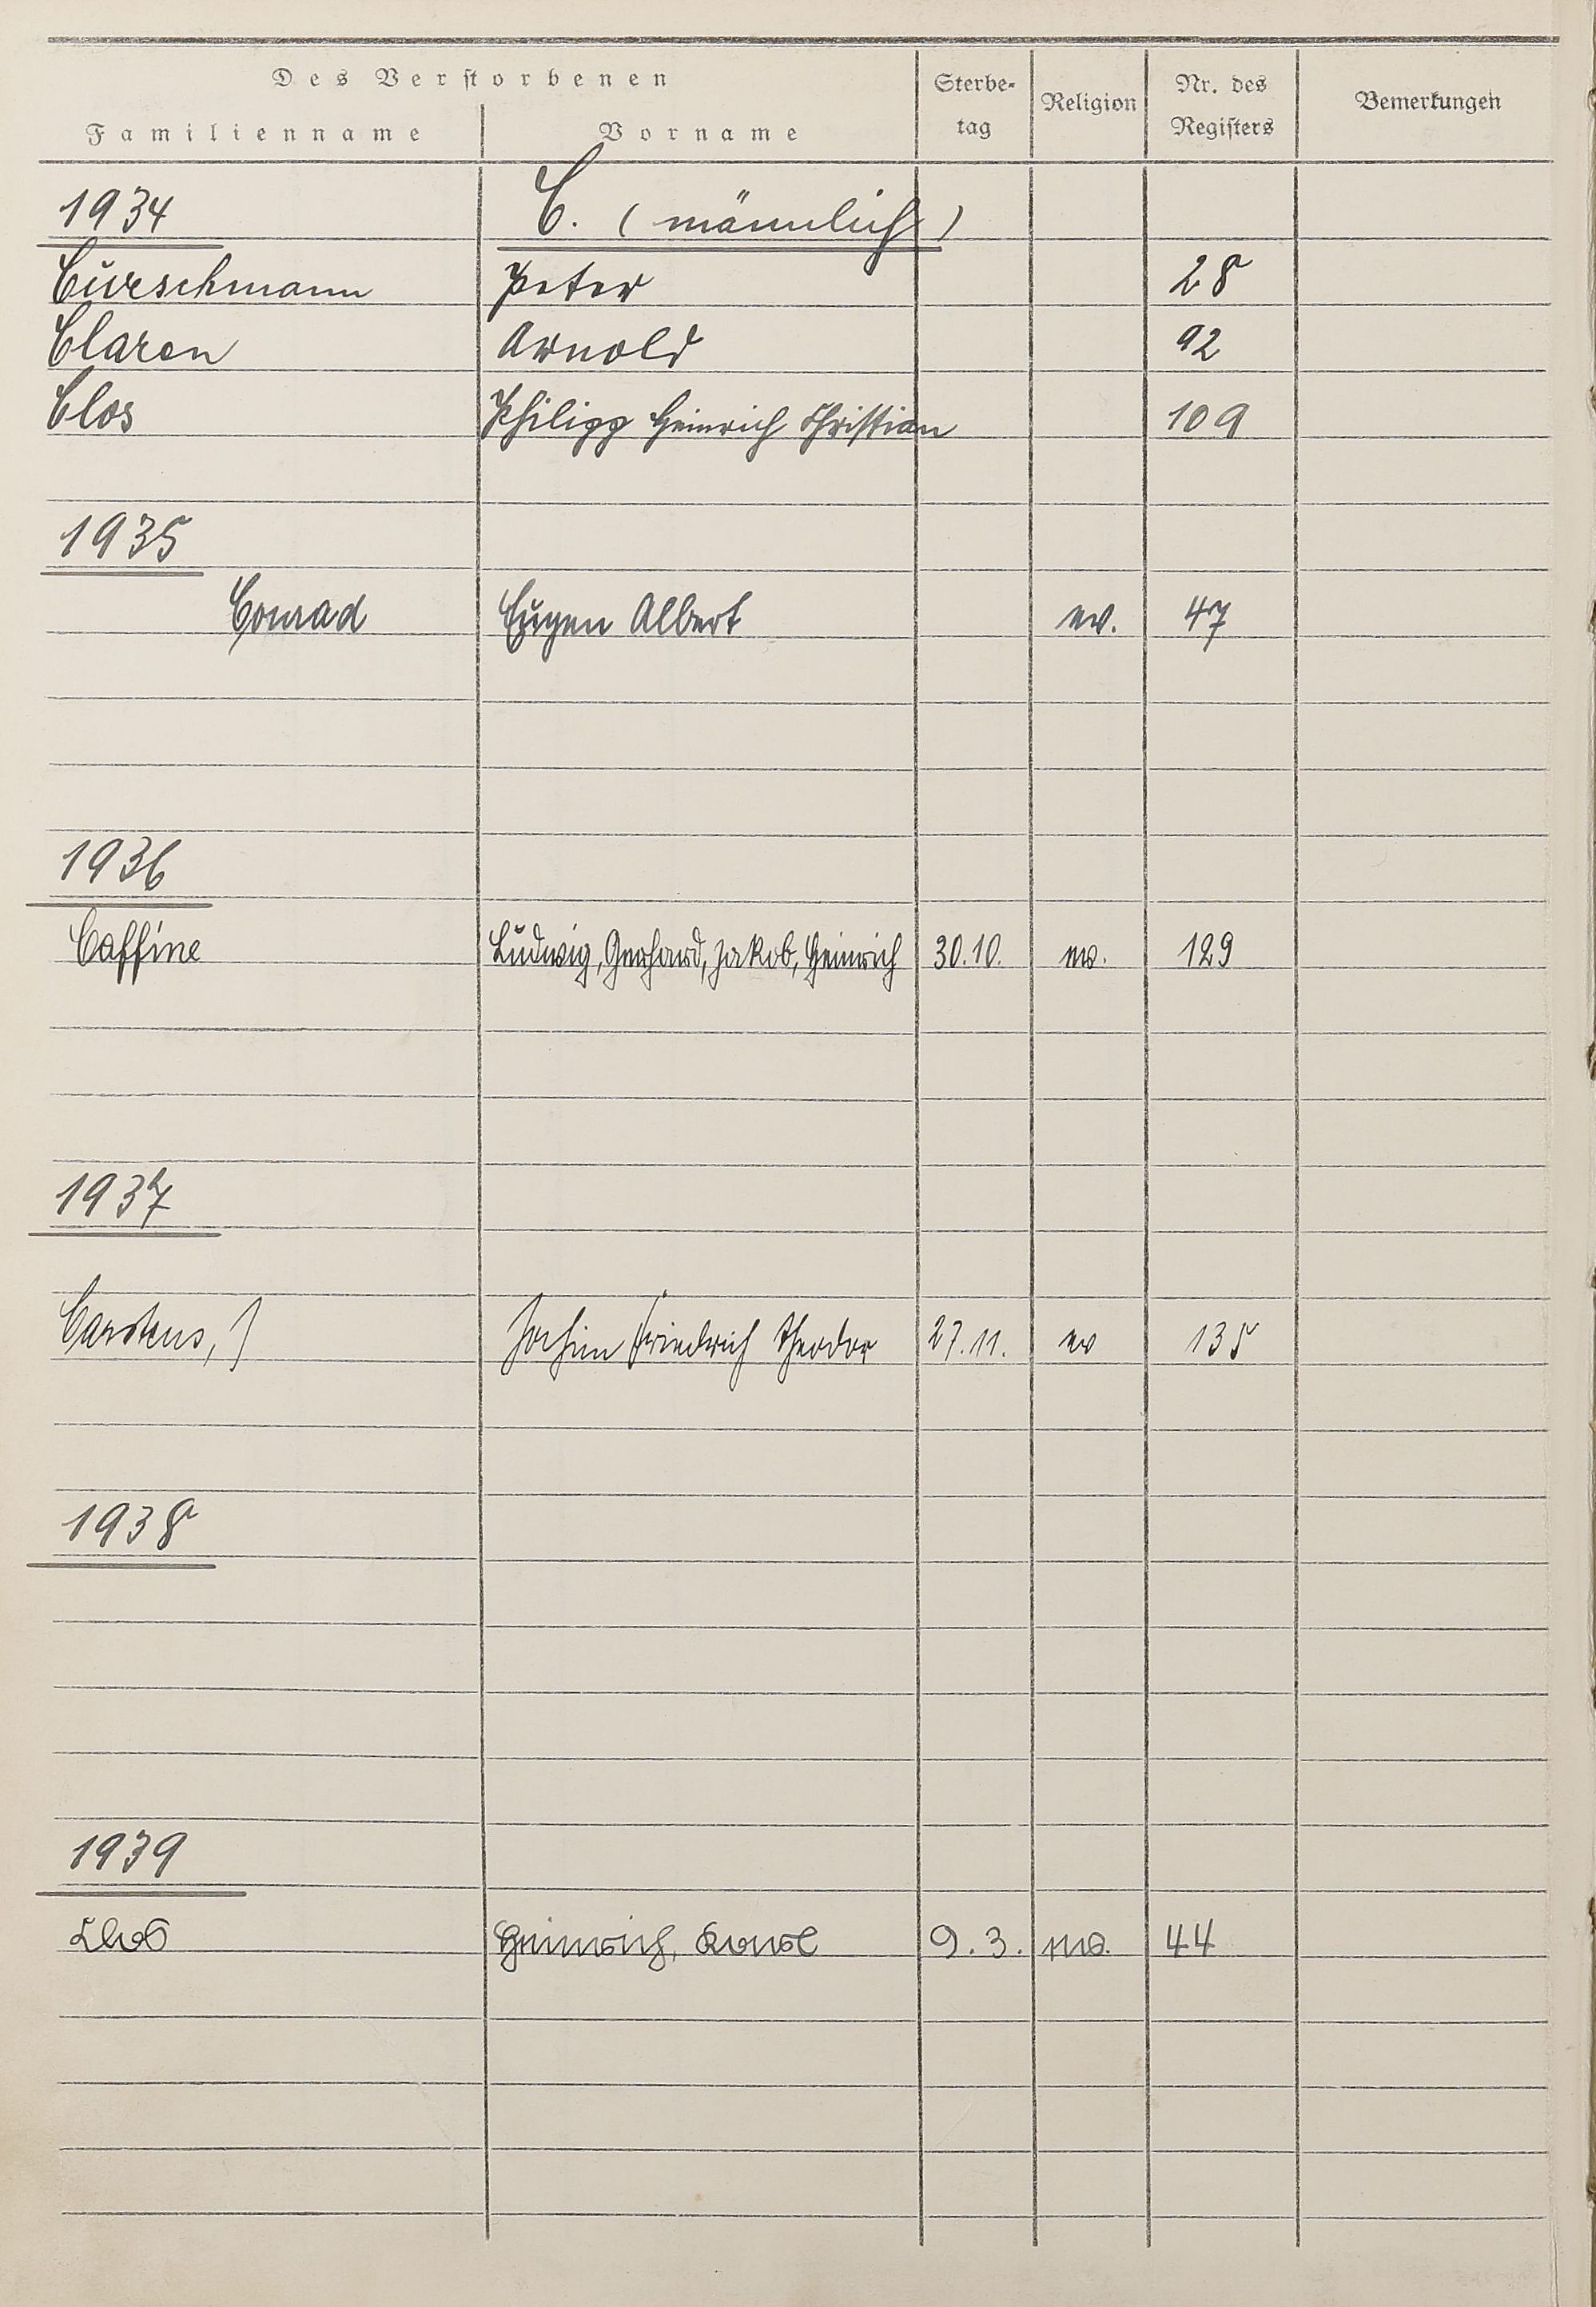 Des Verstorbenen
Familienname Vorname Sterbe-tag Religion Nr. des Registers Bemerkungen
1934 C. (männlich)
Curschmann Peter 28
Claren Arnold 92
Clos Philipp Heinrich Christian 109
1935
Conrad Eugen Albert ev. 47
1936
Caffine Ludwig, Gerhard, Jakob, Heinrich 30.10. ev. 129
1937
Carstens, Jochim Friedrich Theodor 27.11. ev 135
1938
1939
Heinrich, Karl 9.3. ev. 44